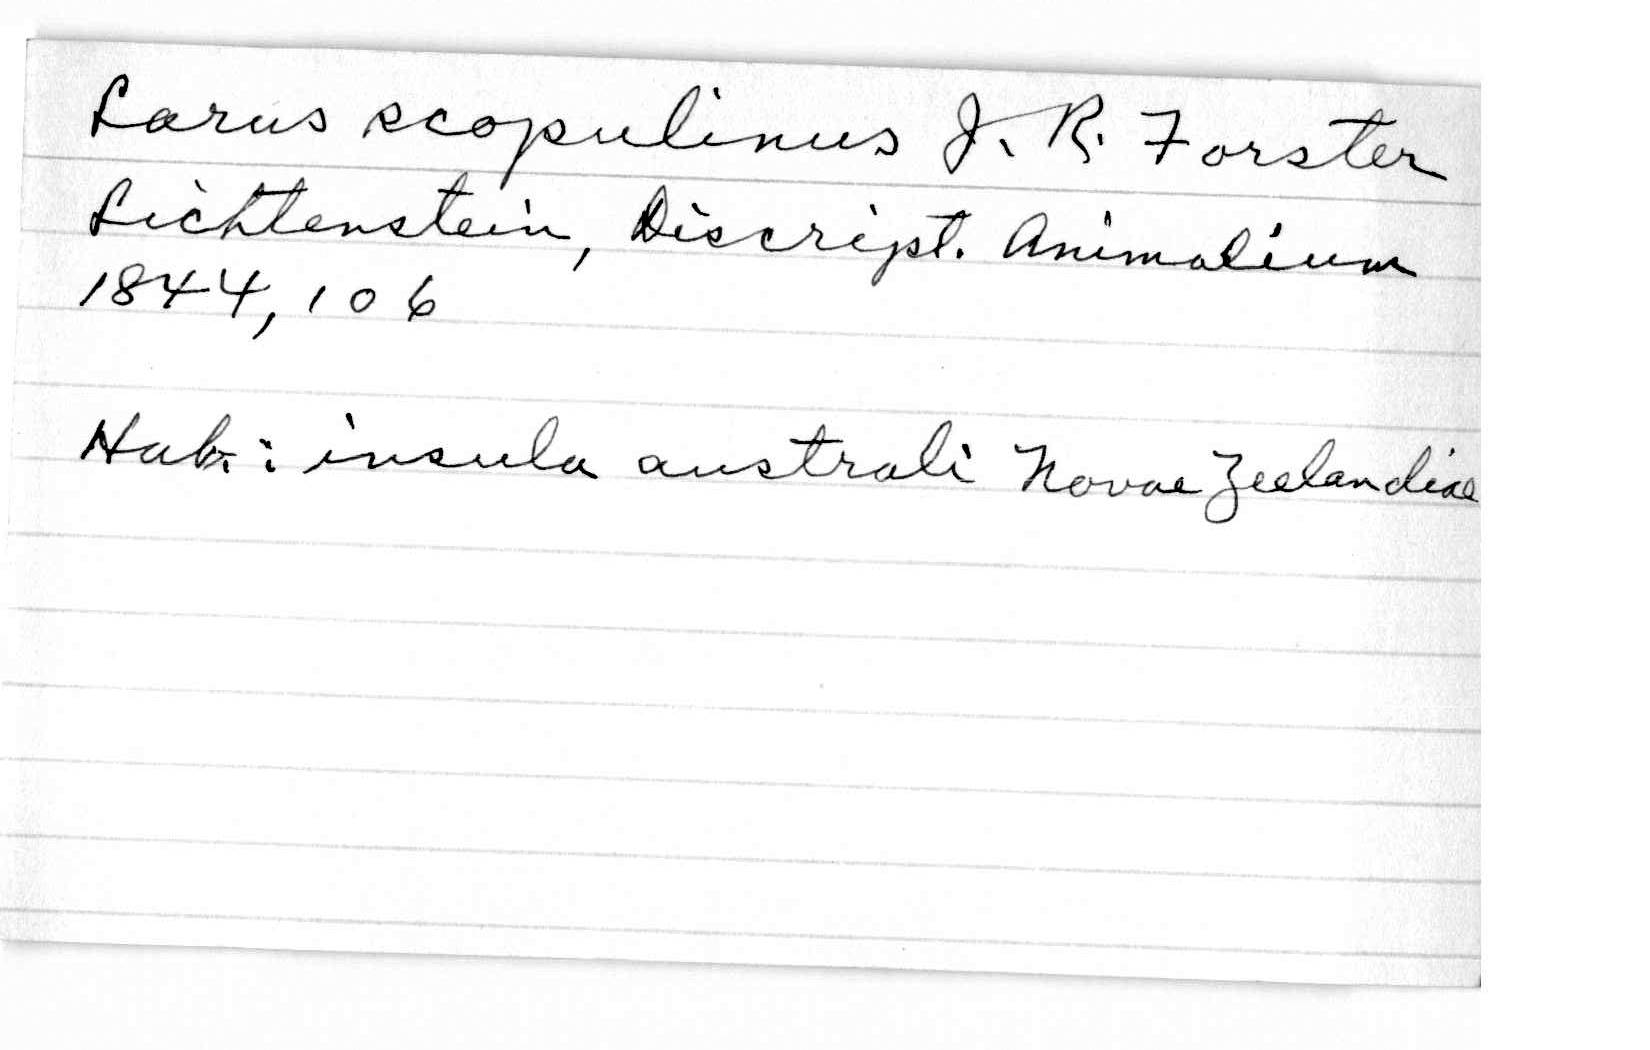 Larus scopulinus J. R. Forster
Lichtenstein, Discript. Animalium
1844, 106
Hab.: insula australi Novae Zeelandiae